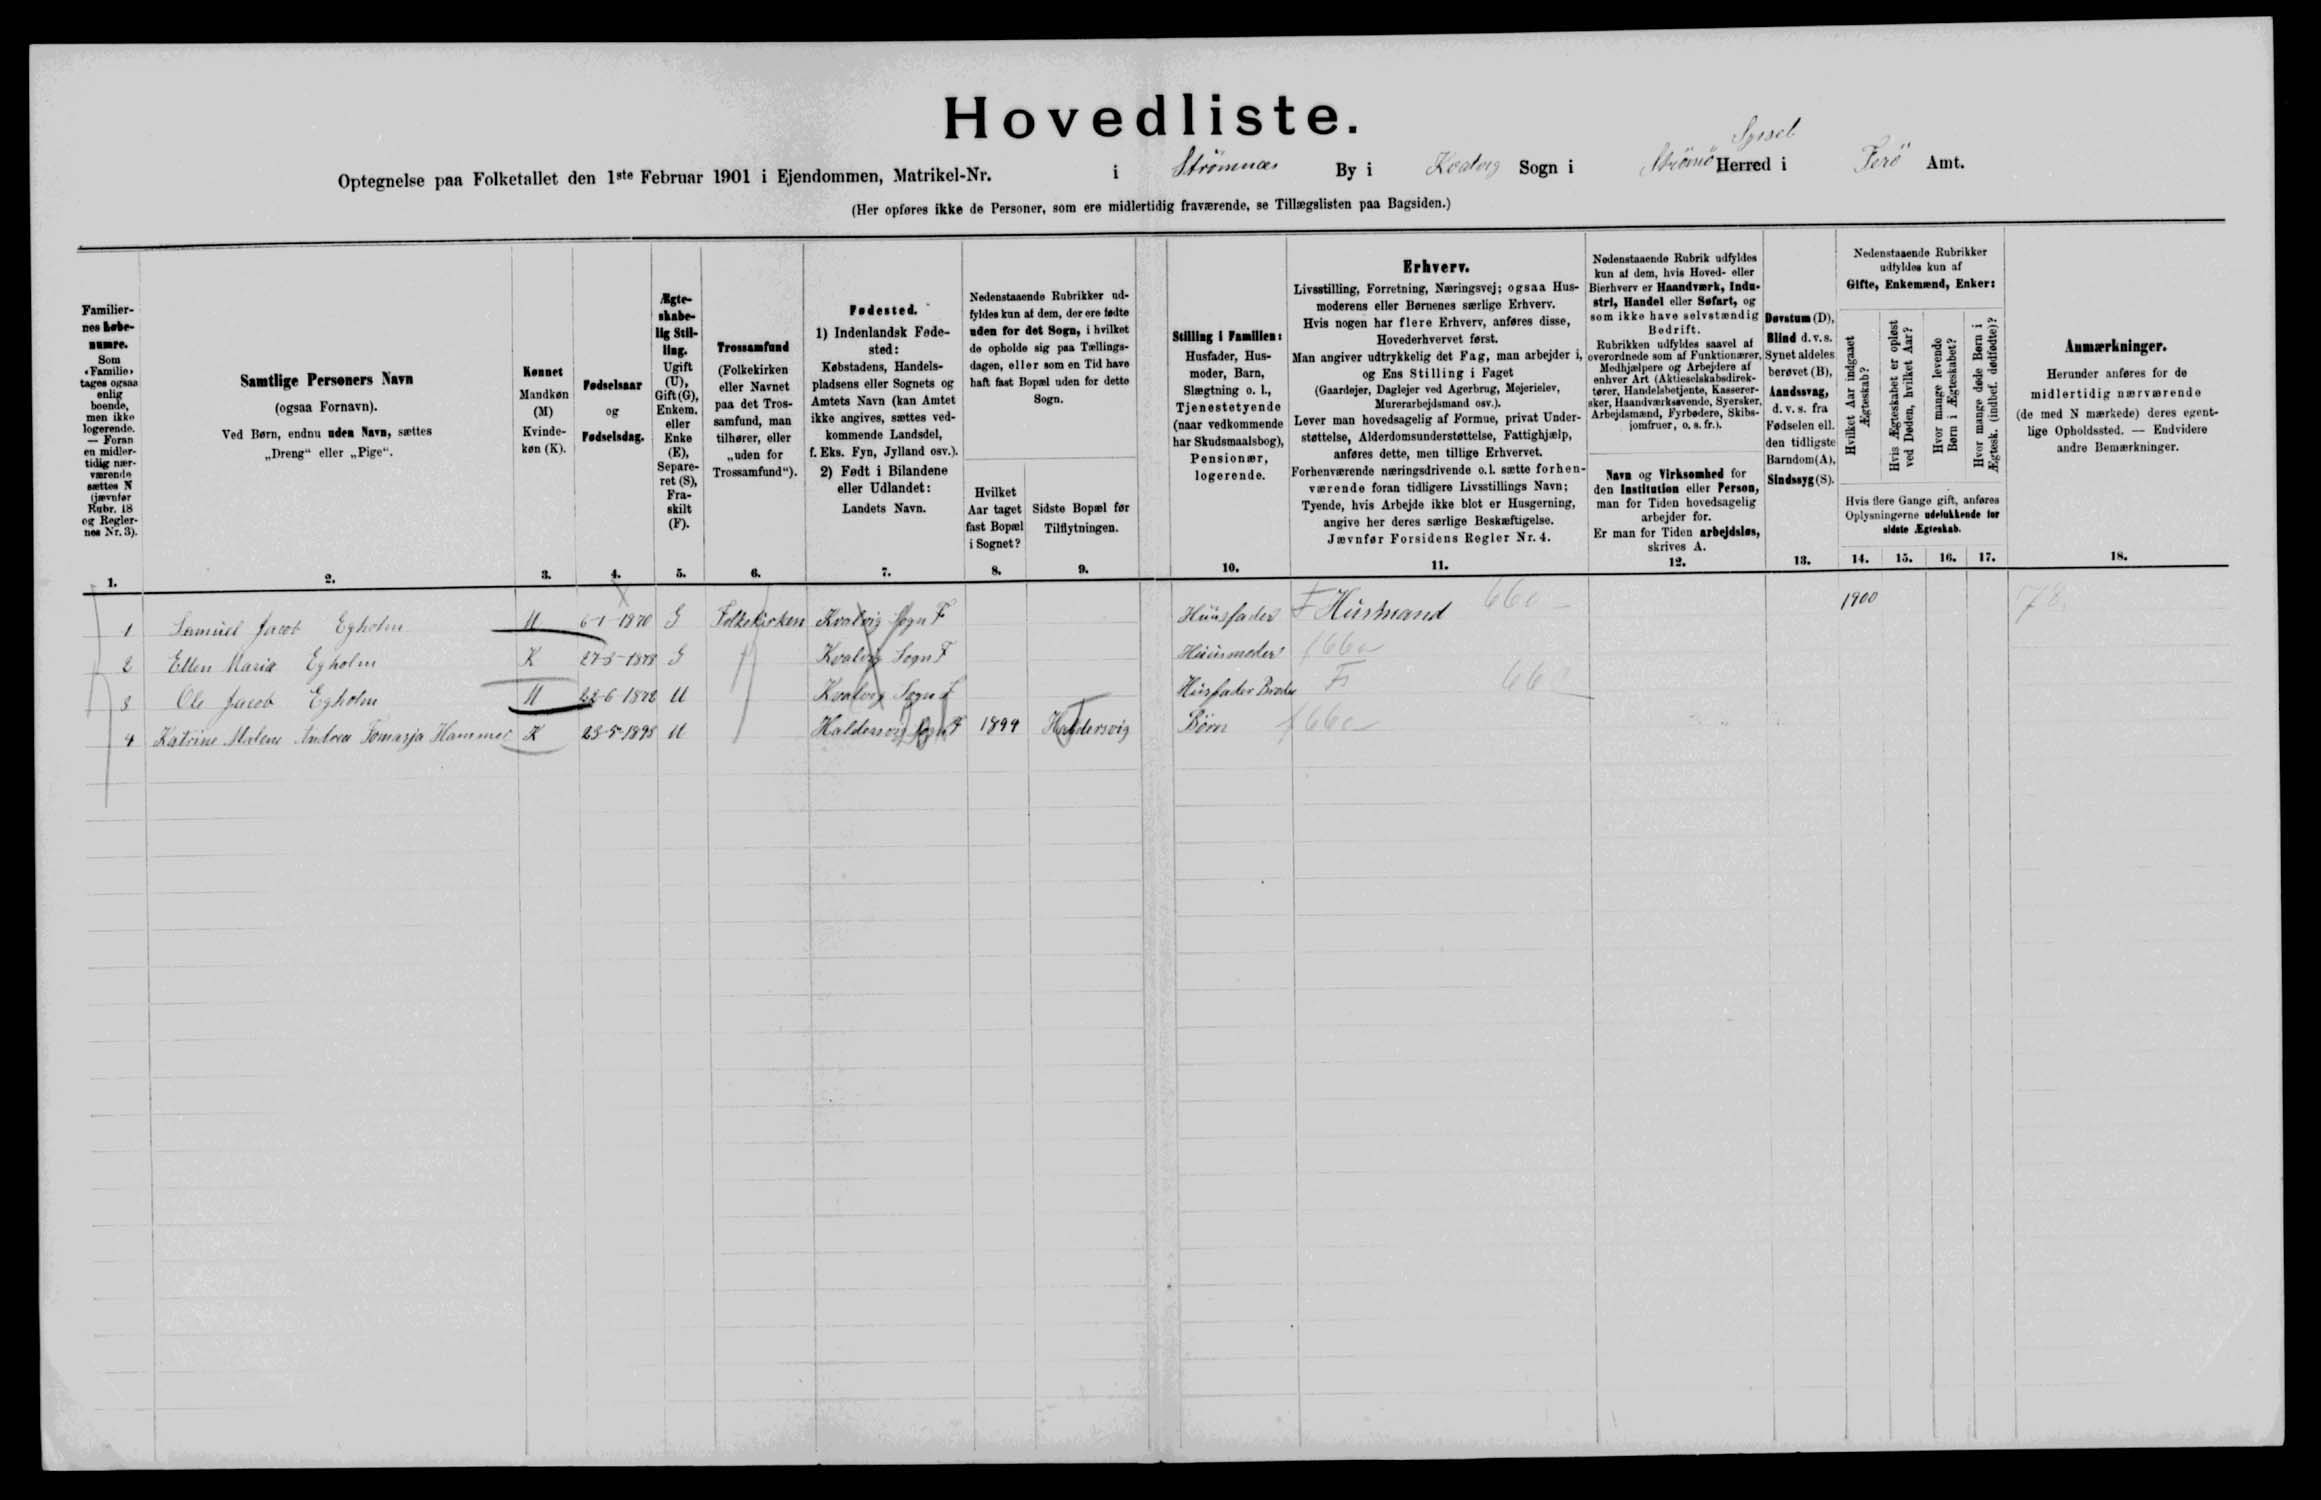 Hovedliste.
Syssel
Optegnelse paa Folketallet den 1ste Februar 1901 i Ejendommen, Matrikel-Nr. i Strömnæs By i Kvalvig Sogn i Strömö Herred i Ferö Amt.
(Her opføres ikke de Personer, som ere midlertidig fraværende, se Tillægslisten paa Bagsiden.)
Familiernes Løbenumre.
Som «Familie» tages ogsaa enlig boende, men ikke logerende. — Foran en midlertidig nærværende sættes N (jævnfør Rubr. 18 og Reglernes Nr. 3).
1.
Samtlige Personers Navn
(ogsaa Fornavn).
Ved Børn, endnu uden Navn, sættes
„Dreng“ eller „Pige“.
2.
Kønnet
Mandkøn (M)
Kvindekøn (K).
3.
Fødselsaar
og
Fødselsdag.
4.
Ægteskabelig Stilling.
Ugift (U), Gift (G), Enkem. eller Enke (E), Separeret (S), Fraskilt (F).
5.
Trossamfund
(Folkekirken eller Navnet paa det Trossamfund, man tilhører, eller „uden for Trossamfund“).
6.
Fødested.
1) Indenlandsk Fødested:
Købstadens, Handelspladsens eller Sognets og Amtets Navn (kan Amtet ikke angives, sættes vedkommende Landsdel, f. Eks. Fyn, Jylland osv.).
2) Født i Bilandene eller Udlandet:
Landets Navn.
7.
Nedenstaaende Rubrikker udfyldes kun af dem, der ere fødte uden for det Sogn, i hvilket de opholde sig paa Tællingsdagen, eller som en Tid have haft fast Bopæl uden for dette Sogn.
Hvilket Aar taget fast Bopæl i Sognet?
8.
Sidste Bopæl før Tilflytningen.
9.
Stilling i Familien:
Husfader, Husmoder, Barn, Slægtning o. l., Tjenestetyende (naar vedkommende har Skudsmaalsbog), Pensionær, logerende.
10.
Erhverv.
Livsstilling, Forretning, Næringsvej; ogsaa Husmoderens eller Børnenes særlige Erhverv.
Hvis nogen har flere Erhverv, anføres disse, Hovederhvervet først.
Man angiver udtrykkelig det Fag, man arbejder i, og Ens Stilling i Faget
(Gaardejer, Daglejer ved Agerbrug, Mejerielev, Murerarbejdsmand osv.).
Lever man hovedsagelig af Formue, privat Understøttelse, Alderdomsunderstøttelse, Fattighjælp, anføres dette, men tillige Erhvervet.
Forhenværende næringsdrivende o.l. sætte forhenværende foran tidligere Livsstillings Navn;
Tyende, hvis Arbejde ikke blot er Husgerning, angive her deres særlige Beskæftigelse.
Jævnfør Forsidens Regler Nr. 4.
11.
Nedenstaaende Rubrik udfyldes kun af dem, hvis Hoved- eller Bierhverv er Haandværk, Industri, Handel eller Søfart, og som ikke have selvstændig Bedrift.
Rubrikken udfyldes saavel af overordnede som af Funktionærer, Medhjælpere og Arbejdere af enhver Art (Aktieselskabsdirektører, Handelsbetjente, Kasserersker, Haandværkssvende, Syersker, Arbejdsmænd, Fyrbødere, Skibsjomfruer, o. s. fr.).
Navn og Virksomhed for den Institution eller Person, man for Tiden hovedsagelig arbejder for.
Er man for Tiden arbejdsløs, skrives A.
12.
Døvstum (D),
Blind d. v. s. Synet aldeles berøvet (B),
Aandssvag, d. v. s. fra Fødselen ell. den tidligste Barndom (A),
Sindssyg (S).
13.
Nedenstaaende Rubrikker udfyldes kun af
Gifte, Enkemænd, Enker:
Hvilket Aar indgaaet Ægteskab?
Hvis Ægteskabet er opløst ved Døden, hvilket Aar?
Hvor mange levende Børn i Ægteskabet?
Hvor mange døde Børn i Ægtesk. (indbef. dødfødte)?
Hvis flere Gange gift, anføres Oplysningerne udelukkende for sidste Ægteskab.
14. 15. 16. 17.
Anmærkninger.
Herunder anføres for de midlertidig nærværende (de med N mærkede) deres egentlige Opholdssted. — Endvidere andre Bemærkninger.
18.
1 Samuel Jacob Egholm M 6-1-1870 G Folkekirken Kvalvig Sogn F Huusfader F Husmand 660 1900 78
2 Ellen Maria Egholm K G Kvalvig Sogn F Huusmoder 660
3 Ole Jacob Egholm M U Kvalvig Sogn F Husfader Broder F 660
4 Katrine Malene Andrea Tomasja Hammer K U Haldersvig Sogn F 1899 Haldersvig Børn 660